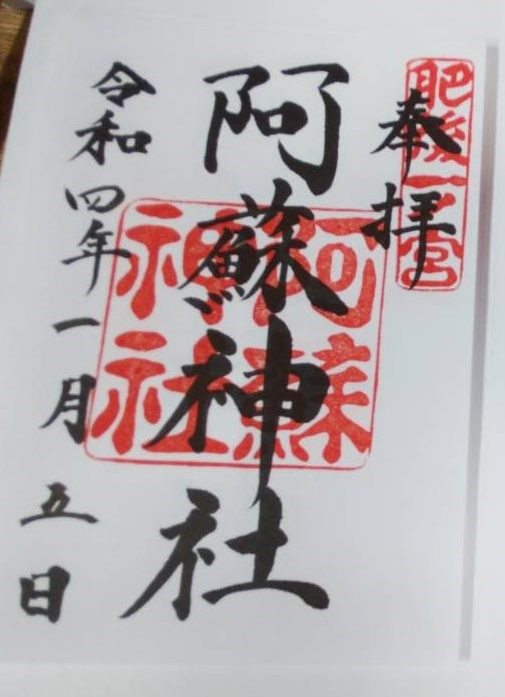 肥後一ノ宮
奉拝
阿蘇神社
阿蘇
神社
令和四年一月五日